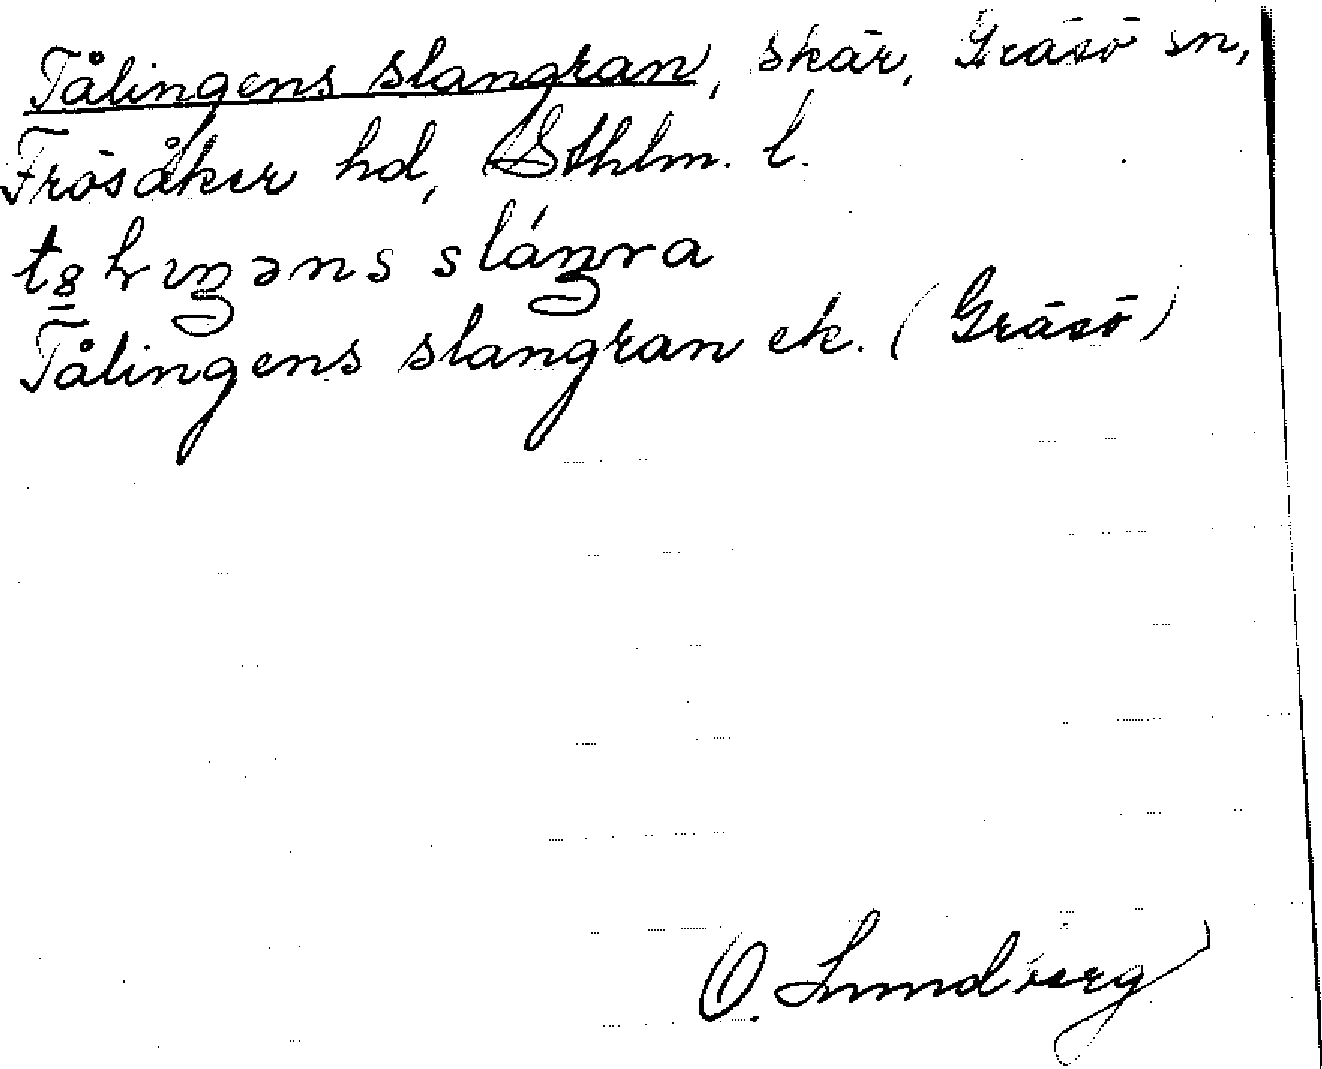 Tålingens slangran, skär, Gräsö sn,
Frösåker hd, Sthlm. l.
Tålingens slangran ek. (Gräsö)
O. Lundberg